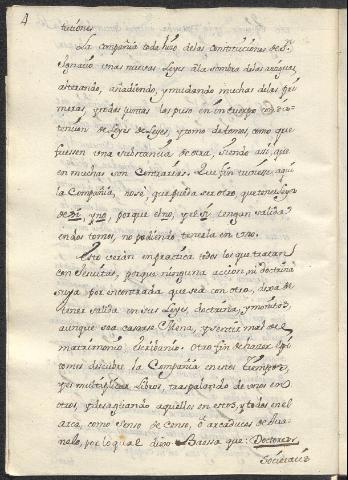 4
tuciones
La compañia toda hizo de las Constituciones de S.
Ignacio unas nuevas Leyes a la sombra de las antiguas
alterando, añadiendo, y mudando muchas de las pri
meras, y todas juntas las puso en un cuerpo con
de Leyes de Leyes, y tomo de tomos, como que
fuessen una substancia de otra, siendo assi, que
en muchas son Contrarias. Que fin tuviesse, aqui
la Compañia, no sè, que pueda ser otro, que tener Leyes
de si, y no, porque el no, y el si, tengan salida
en dos tomos, no podiendo tenerla en uno.
Esto verán en practica todos los que tratan
con Jesuitas, porque ninguna accion, ni doctrina
suya por encontrada que sea con otra, dexa de
tener salida en sus Leyes, doctrina, y
aunque sea casarse Mena, y sentir mal del
matrimonio Escribanis. Otro fin de hazer Epi
tomes descubre la Compañia en estos tiempos,
y es multiplicar Libros, traspalando de unos en
otros, y desaguando aquellos en estos, y todos en el
arca, como Senso de Censo, ò arcaduces de
por lo qual dixo Baessa que: Doctores
Societatis